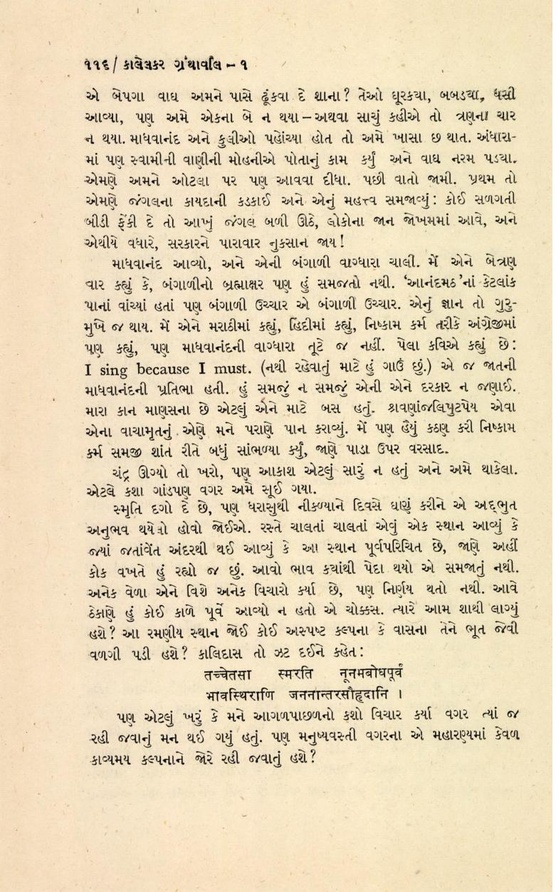 ૧૧૬/ કાલેલકર ગ્રંથાવલિ – ૧
એ બેપગા વાઘ અમને પાસે ઢૂંકવા દે શાના? તેઓ ઘૂરકયા, બબડયા, ધસી
આવ્યા, પણ અમે એકના બે ન થયા – અથવા સાચું કહીએ તો ત્રણના ચાર
ન થયા. માધવાનંદ અને કુલીઓ પહોંચ્યા હોત તો અમે ખાસા છ થાત. અંધારા-
માં પણ સ્વામીની વાણીની મોહનીએ પોતાનું કામ કર્યું અને વાઘ નરમ પડયા.
એમણે અમને ઓટલા પર પણ આવવા દીધા. પછી વાતો જામી. પ્રથમ તો
એમણે જંગલના કાયદાની કડકાઈ અને એનું મહત્ત્વ સમજાવ્યું: કોઈ સળગતી
બીડી ફેંકી દે તો આખું જંગલ બળી ઊઠે, લોકોના જાન જોખમમાં આવે, અને
એથીયે વધારે, સરકારને પારાવાર નુકસાન જાય!
માધવાનંદ આવ્યો, અને એની બંગાળી વાગ્ધારા ચાલી. મેં એને બેત્રણ
વાર કહ્યું કે, બંગાળીનો બ્રહ્માક્ષર પણ હું સમજતો નથી. ‘આનંદમઠ’નાં કેટલાંક
પાનાં વાંચ્યાં હતાં પણ બંગાળી ઉચ્ચાર એ બંગાળી ઉચ્ચાર. એનું જ્ઞાન તો ગુરુ-
મુખે જ થાય. મેં એને મરાઠીમાં કહ્યું, હિંદીમાં કહ્યું, નિષ્કામ કર્મ તરીકે અંગ્રેજીમાં
પણ કહ્યું, પણ માધવાનંદની વાગ્ધારા તૂટે જ નહીં. પેલા કવિએ કહ્યું છે:
I sing because I must. (નથી રહેવાતું માટે હું ગાઉં છું.) એ જ જાતની
માધવાનંદની પ્રતિભા હતી. હું સમજું ન સમજું એની એને દરકાર ન જણાઈ.
મારા કાન માણસના છે એટલું એને માટે બસ હતું. શ્રવણાંજલિપુટપેય એવા
એના વાચામૃતનું એણે મને પરાણે પાન કરાવ્યું. મેં પણ હૈયું કઠણ કરી નિષ્કામ
કર્મ સમજી શાંત રીતે બધું સાંભળ્યા કર્યું, જાણે પાડા ઉપર વરસાદ.
ચંદ્ર ઊગ્યો તો ખરો, પણ આકાશ એટલું સારું ન હતું અને અમે થાકેલા.
એટલે કશા ગાંડપણ વગર અમે સૂઈ ગયા.
સ્મૃતિ દગો દે છે, પણ ધરાસુથી નીકળ્યાને દિવસે ઘણું કરીને એ અદ્ભુત
અનુભવ થયેલો હોવો જોઈએ. રસ્તે ચાલતાં ચાલતાં એવું એક સ્થાન આવ્યું કે
જ્યાં જતાંવેંત અંદરથી થઈ આવ્યું કે આ સ્થાન પૂર્વપરિચિત છે, જાણે અહીં
કોક વખતે હું રહ્યો જ છું. આવો ભાવ કયાંથી પેદા થયો એ સમજાતું નથી.
અનેક વેળા એને વિશે અનેક વિચારો કર્યા છે, પણ નિર્ણય થતો નથી. આવે
ઠેકાણે હું કોઈ કાળે પૂર્વે આવ્યો ન હતો એ ચોક્કસ. ત્યારે આમ શાથી લાગ્યું
હશે? આ રમણીય સ્થાન જોઈ કોઈ અસ્પષ્ટ કલ્પના કે વાસના તેને ભૂત જેવી
વળગી પડી હશે? કાલિદાસ તો ઝટ દઈને કહેત:
तच्चेतसा स्मरति नूनमबोधपूर्वं
भावस्थिराणि जननान्तरसौहृदानि ।
પણ એટલું ખરું કે મને આગળપાછળનો કશો વિચાર કર્યા વગર ત્યાં જ
રહી જવાનું મન થઈ ગયું હતું. પણ મનુષ્યવસ્તી વગરના એ મહારણ્યમાં કેવળ
કાવ્યમય કલ્પનાને જોરે રહી જવાતું હશે?